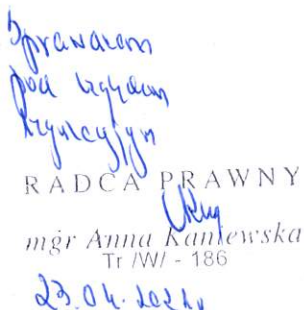 Sprawdzam
pod względem
RADCA PRAWNY
mgr Anna Kaniewska
Tr /W/ - 186
23.04.2021r